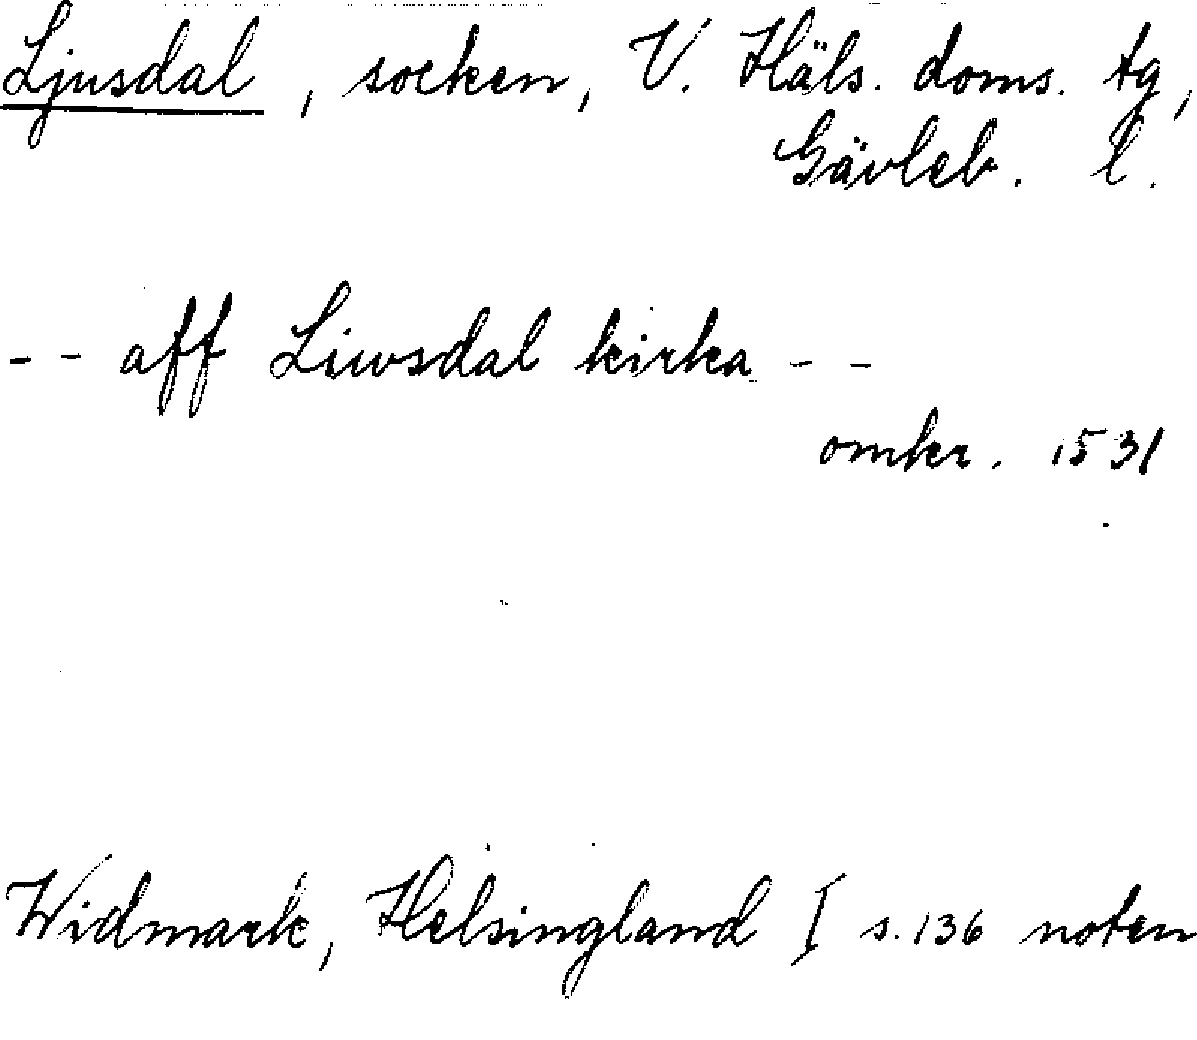 Ljusdal, socken, V. Häls. doms. tg,
Gävleb. l.
-- aff Liwsdal kirka --
omkr. 1531
Widmark, Helsingland I s. 136 noten